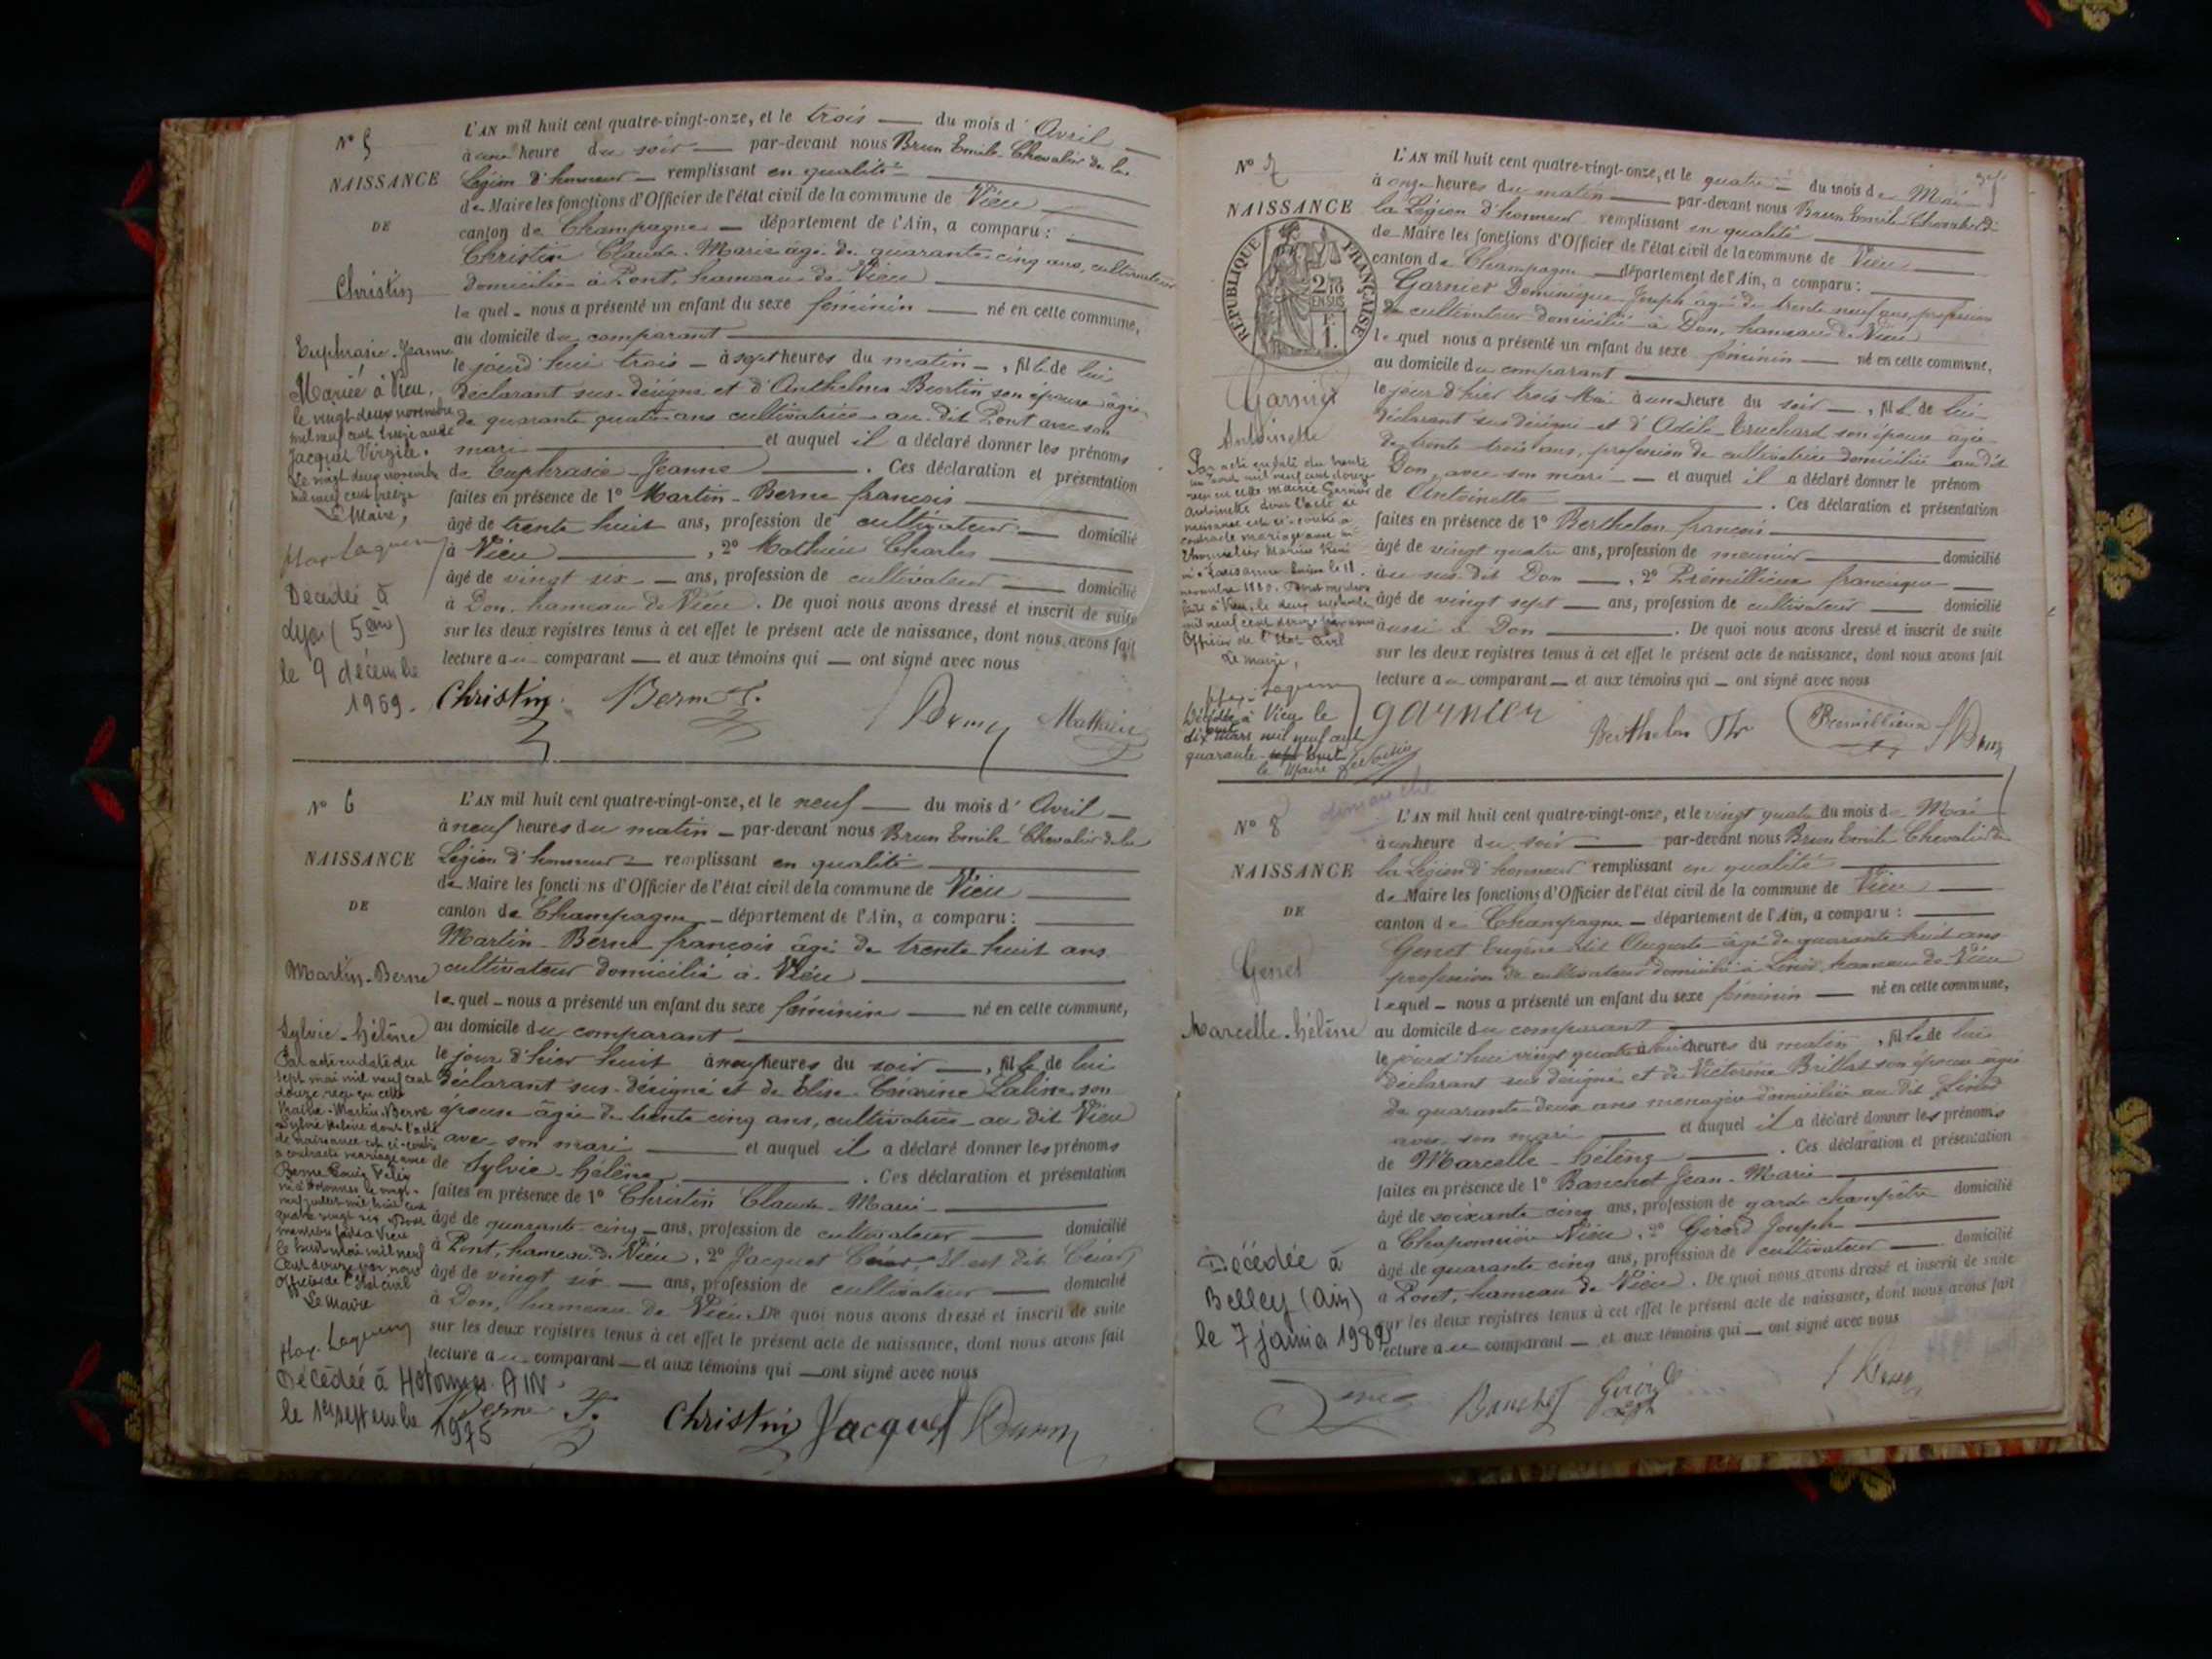 N° 5
NAISSANCE
DE
Christin
Euphrasie-Jeanne
Mariée à Vieu,
le vingt-deux novembre
mil neuf cent treize avec
Jacquet Virgile.
Le vingt deux novembre
mil neuf cent treize
Le Maire,
Décédée à
Lyon (5ème)
le 9 décembre
1969.
L'AN mil huit cent quatre-vingt-onze, et le trois — du mois d' Avril —
à une heure du soir — par-devant nous Brun Emile Chevalier de la
Légion d'honneur — remplissant en qualité
de Maire les fonctions d'Officier de l'état civil de la commune de Vieu
canton de Champagne — département de l'Ain, a comparu :
Christin Claude-Marie âgé de quarante-cinq ans, cultivateur
domicilié à Pont, hameau de Vieu
le quel - nous a présenté un enfant du sexe féminin — né en cette commune,
au domicile du comparant
le jourd'hui trois — à sept heures du matin —, fille de lui
déclarant sus-désigné et d'Anthelma Burtin son épouse âgée
de quarante quatre ans cultivatrice au dit Pont avec son
mari — et auquel il a déclaré donner les prénoms
de Euphrasie-Jeanne — . Ces déclaration et présentation
faites en présence de 1° Martin-Berne françois
âgé de trente huit ans, profession de cultivateur — domicilié
à Vieu — , 2° Mathieu Charles
âgé de vingt six — ans, profession de cultivateur — domicilié
à Don, hameau de Vieu . De quoi nous avons dressé et inscrit de suite
sur les deux registres tenus à cet effet le présent acte de naissance, dont nous avons fait
lecture au comparant — et aux témoins qui — ont signé avec nous
Christin Berne F. Brun Mathieu
N° 6
NAISSANCE
DE
Martin-Berne
Sylvie-Hélène
Par acte en date du
sept mai mil neuf cent
douze reçu en cette
Mairie Martin-Berne
Sylvie Hélène dont l'acte
de naissance est ci-contre
a contracté mariage avec
Berne Louis Félix
né à Hotonnes le vingt-
mil huit cent
quatre vingt six
mention faite à Vieu
le huit mai mil neuf
cent douze par nous
Officier de l'Etat civil
Le Maire
Décédée à Hotonnes AIN
le 1er septembre 1975
L'AN mil huit cent quatre-vingt-onze, et le neuf — du mois d' Avril —
à neuf heures du matin — par-devant nous Brun Emile Chevalier de la
Légion d'honneur — remplissant en qualité
de Maire les fonctions d'Officier de l'état civil de la commune de Vieu
canton de Champagne — département de l'Ain, a comparu :
Martin-Berne françois âgé de trente huit ans
cultivateur domicilié à Vieu
le quel - nous a présenté un enfant du sexe féminin — né en cette commune,
au domicile du comparant
le jour d'hier huit à neuf heures du soir —, fille de lui
déclarant sus-désigné et de Elise Césarine Saline son
épouse âgée de trente cinq ans, cultivatrice au dit Vieu
avec son mari — et auquel il a déclaré donner les prénoms
de Sylvie-Hélène — . Ces déclaration et présentation
faites en présence de 1° Christin Claude-Marie
âgé de quarante-cinq — ans, profession de cultivateur — domicilié
à Pont, hameau de Vieu , 2° Jacquet
âgé de vingt six — ans, profession de cultivateur — domicilié
à Don, hameau de Vieu . De quoi nous avons dressé et inscrit de suite
sur les deux registres tenus à cet effet le présent acte de naissance, dont nous avons fait
lecture au comparant — et aux témoins qui — ont signé avec nous
Berne F. Christin Jacquet Brun
N° 7
NAISSANCE
RÉPUBLIQUE FRANÇAISE
2/10
EN SUS
F.
1.
Garnier
Antoinette
Par acte en date du trente
un août mil neuf cent douze
reçu en cette mairie Garnier
Antoinette dont l'acte de
naissance est ci-contre a
contracté mariage avec
Marius
fait à Vieu, le deux septembre
mil neuf cent douze par nous
Officier de l'Etat Civil
Le maire,
Décédée à Vieu le
dix mars mil neuf cent
quarante huit
le Maire
L'AN mil huit cent quatre-vingt-onze, et le quatre — du mois de Mai
à onze heures du matin — par-devant nous Brun Emile Chevalier de
la Légion d'honneur remplissant en qualité
de Maire les fonctions d'Officier de l'état civil de la commune de Vieu
canton de Champagne — département de l'Ain, a comparu :
Garnier Dominique-Joseph âgé de trente neuf ans, profession
de cultivateur domicilié à Don, hameau de Vieu
le quel nous a présenté un enfant du sexe féminin — né en cette commune,
au domicile du comparant
le jour d'hier trois Mai à une heure du soir —, fille de lui
déclarant sus désigné et d'Adèle Truchard son épouse âgée
de trente trois ans, profession de cultivatrice domiciliée au dit
Don, avec son mari — et auquel il a déclaré donner le prénom
de Antoinette — . Ces déclaration et présentation
faites en présence de 1° Berthelon françois
âgé de vingt quatre ans, profession de meunier — domicilié
au sus-dit Don — , 2° Prémillieux
âgé de vingt sept — ans, profession de cultivateur — domicilié
aussi à Don — . De quoi nous avons dressé et inscrit de suite
sur les deux registres tenus à cet effet le présent acte de naissance, dont nous avons fait
lecture au comparant — et aux témoins qui — ont signé avec nous
garnier Berthelon Premillieux Brun
N° 8
dimanche
NAISSANCE
DE
Genet
Marcelle-Hélène
Décédée à
Belley (Ain)
le 7 janvier 1982
L'AN mil huit cent quatre-vingt-onze, et le vingt quatre du mois de Mai
à une heure du soir — par-devant nous Brun Emile Chevalier de
la Légion d'honneur remplissant en qualité
de Maire les fonctions d'Officier de l'état civil de la commune de Vieu
canton de Champagne — département de l'Ain, a comparu :
Genet Eugène dit Auguste âgé de quarante huit ans
profession de cultivateur domicilié à Linod, hameau de Vieu
lequel — nous a présenté un enfant du sexe féminin — né en cette commune,
au domicile du comparant
le jourd'hui vingt quatre à huit heures du matin , fille de lui
déclarant sus désigné et de Victorine Brillat son épouse âgée
de quarante-deux ans menagère domiciliée au dit Linod
avec son mari — et auquel il a déclaré donner les prénoms
de Marcelle-Hélène — . Ces déclaration et présentation
faites en présence de 1° Banchet Jean-Marie
âgé de soixante cinq ans, profession de garde champêtre domicilié
à Chaponnière Vieu , 2° Girord Joseph
âgé de quarante cinq ans, profession de cultivateur — domicilié
à Pont, hameau de Vieu . De quoi nous avons dressé et inscrit de suite
sur les deux registres tenus à cet effet le présent acte de naissance, dont nous avons fait
lecture au comparant — et aux témoins qui — ont signé avec nous
Banchet Girord Brun